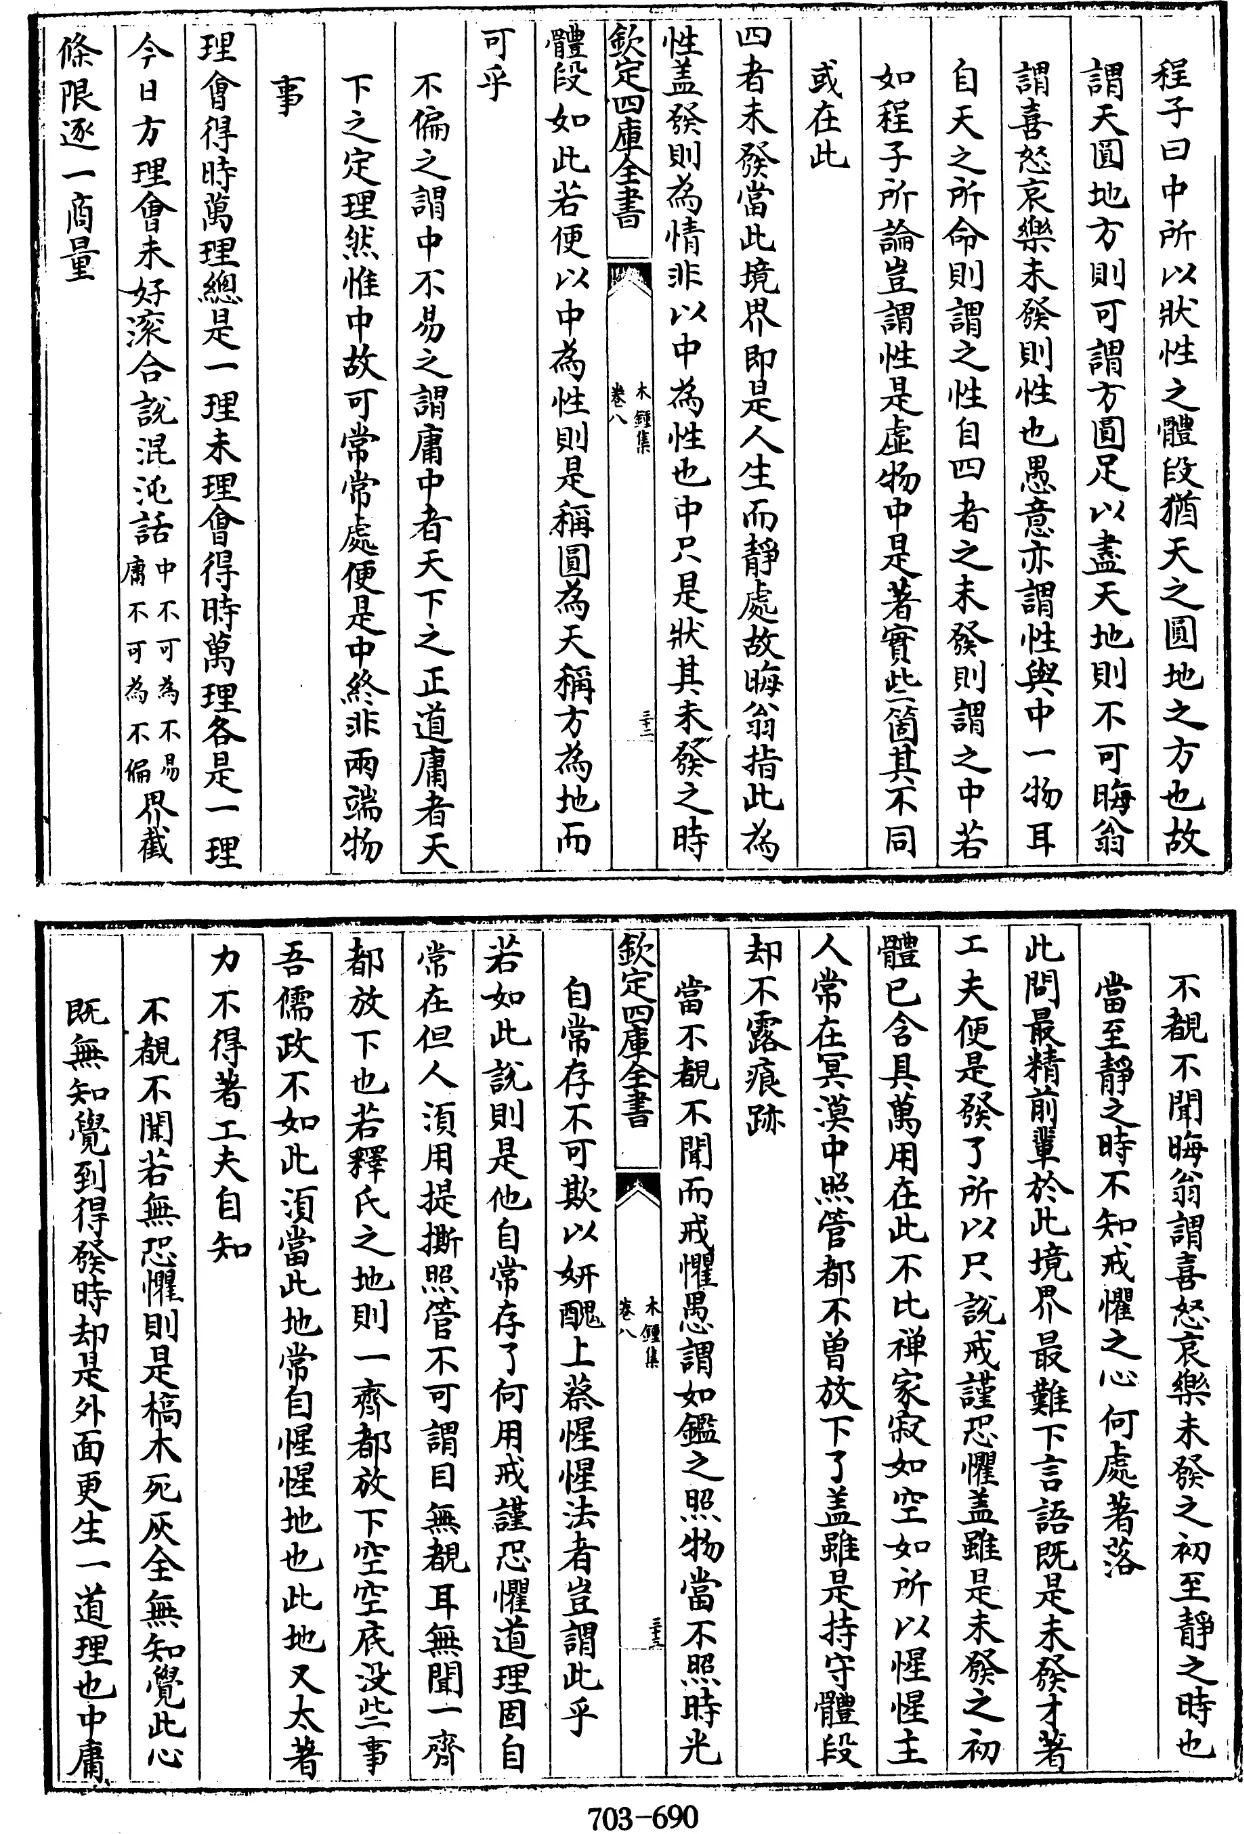 程子曰中所以狀性之體段猶天之圓地之方也故
謂天圓地方則可謂方圓足以盡天地則不可晦翁
謂喜怒哀樂未發則性也愚意亦謂性與中一物耳
自天之所命則謂之性自四者之未發則謂之中若
如程子所論豈謂性是虛物中是著實些箇其不同
或在此
四者未發當此境界即是人生而靜處故晦翁指此為
性盖發則為情非以中為性也中只是狀其未發之時
欽定四庫全書
木鍾集
卷八
三十二
體段如此若便以中為性則是稱圓為天稱方為地而
可乎
不偏之謂中不易之謂庸中者天下之正道庸者天
下之定理然惟中故可常常處便是中終非兩端物
事
理會得時萬理總是一理未理會得時萬理各是一理
今日方理會未好滚合說混沌話中不可為不易庸不可為不偏界截
條限逐一商量
不覩不聞晦翁謂喜怒哀樂未發之初至靜之時也
當至靜之時不知戒懼之心何處著落
此問最精前輩於此境界最難下言語既是未發才著
工夫便是發了所以只說戒謹恐懼盖雖是未發之初
體已含具萬用在此不比禅家寂如空如所以惺惺主
人常在冥漠中照管都不曾放下了盖雖是持守體段
却不露痕跡
當不覩不聞而戒懼愚謂如鑑之照物當不照時光
欽定四庫全書
木鍾集
卷八
三十三
自常存不可欺以妍醜上蔡惺惺法者豈謂此乎
若如此說則是他自常存了何用戒謹恐懼道理固自
常在但人湏用提撕照管不可謂目無覩耳無聞一齊
都放下也若釋氏之地則一齊都放下空空底没些事
吾儒政不如此湏當此地常自惺惺地也此地又太著
力不得著工夫自知
不覩不聞若無恐懼則是槁木死灰全無知覺此心
既無知覺到得發時却是外面更生一道理也中庸
703-690